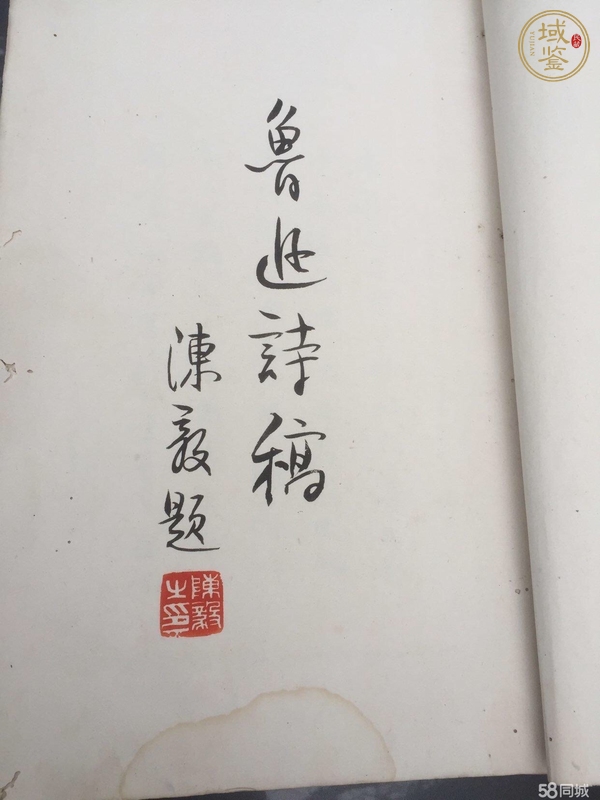 魯迅詩稿
陳毅題
陳毅之印
域鉴
YUJIAN
58同城